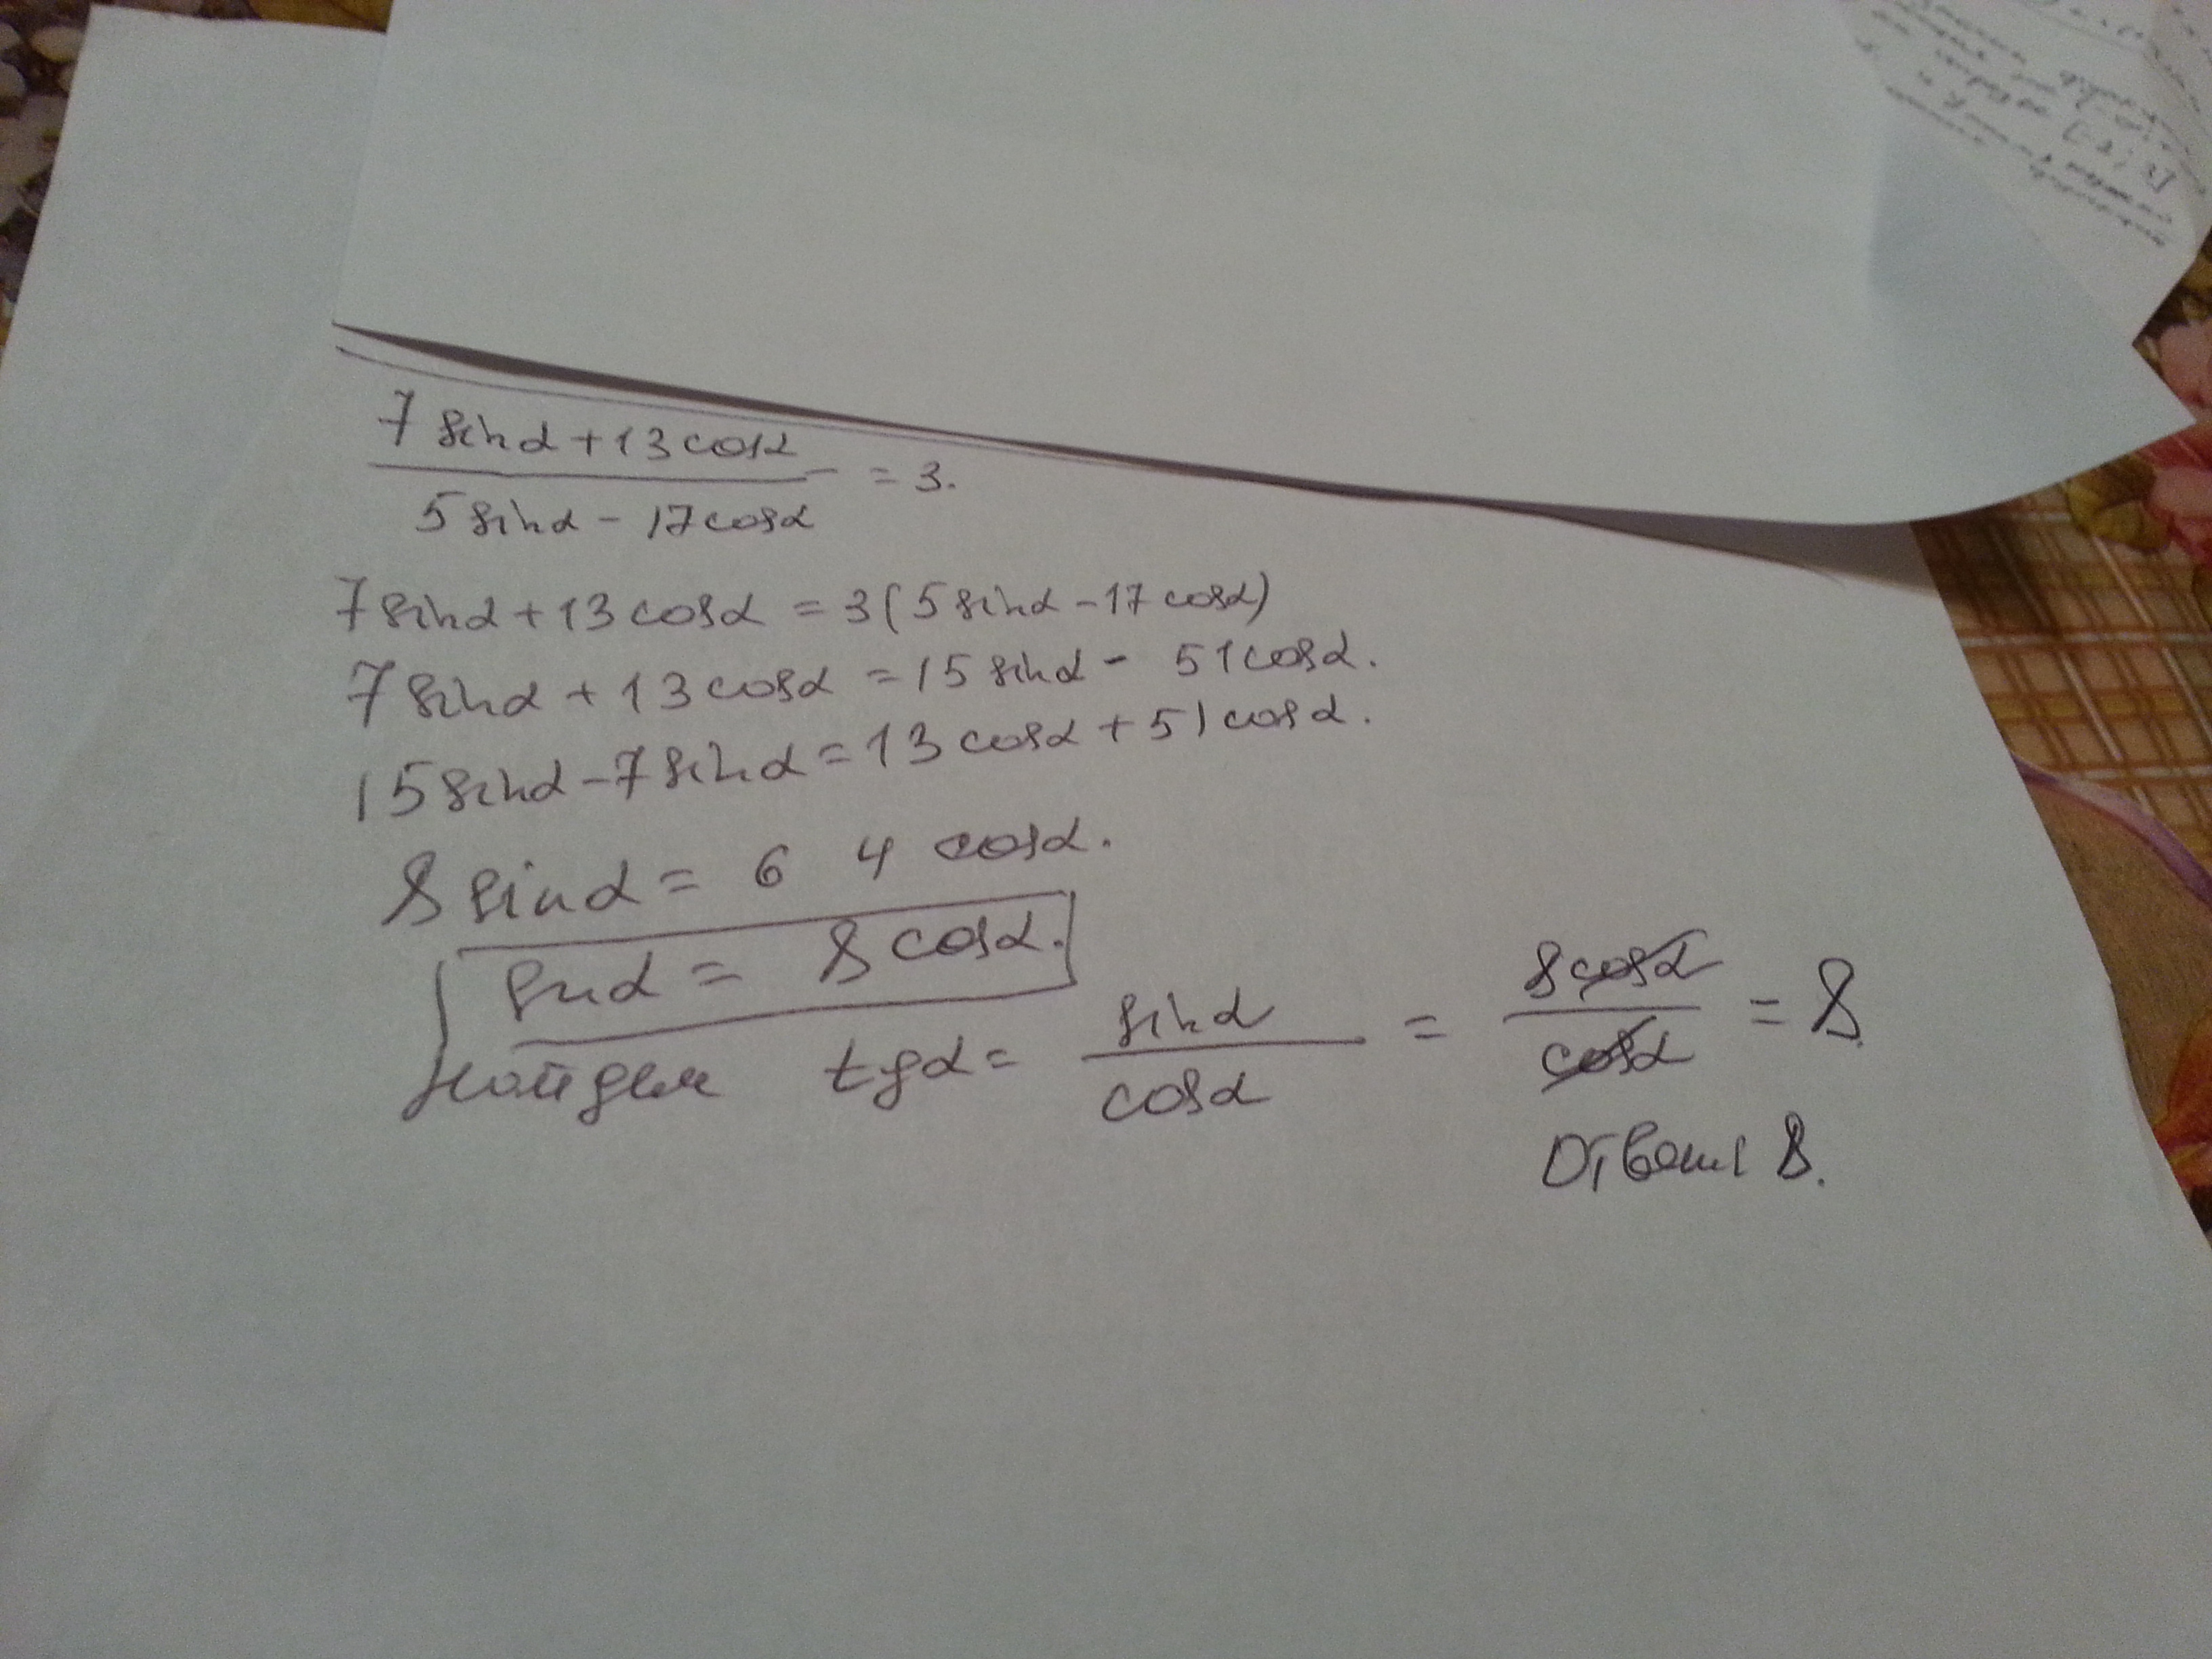 7 sinα + 13 cosα
————— = 3.
5 sinα - 17 cosα
7 sinα + 13 cosα = 3(5 sinα - 17 cosα)
7 sinα + 13 cosα = 15 sinα - 51 cosα.
15 sinα - 7 sinα = 13 cosα + 51 cosα.
8 sinα = 6 4 cosα.
sinα = 8 cosα.
найдем tgα = sinα/cosα = 8cosα/cosα = 8.
Ответ 8.